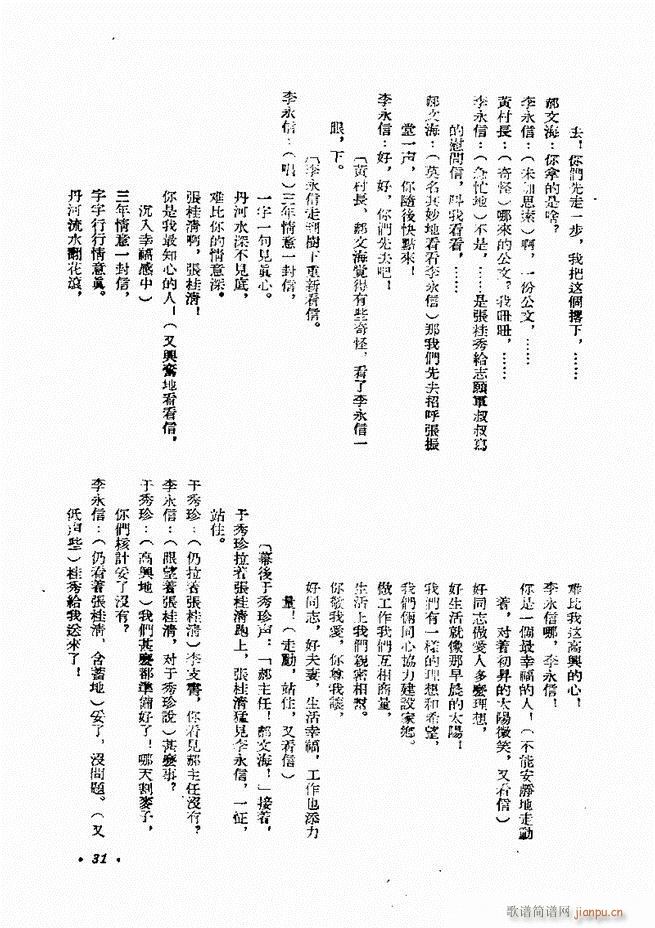 去！你們先走一步，我把這個撂下，……
郝文海：你拿的是啥？
李永信：（未加思索）啊，一份公文，……
黃村長：（奇怪）哪來的公文？我𥅽𥅽，……
李永信：（急忙地）不是，……是張桂秀給志願軍叔叔寫
的慰問信，叫我看看，……
郝文海：（莫名其妙地看看李永信）那我們先去招呼張振
堂一声，你隨後快點來！
李永信：好，好，你們先去吧！
「黃村長、郝文海覺得有些奇怪，看了李永信一
眼，下。
「李永信走到樹下重新看信。
李永信：（唱）三年情意一封信，
一字一句見眞心。
丹河水深不見底，
难比你的情意深。
張桂清啊，張桂清！
你是我最知心的人！（又興奮地看看信，
沉入幸福感中）
三年情意一封信，
字字行行情意眞。
丹河流水翻花滾，
难比我这高興的心！
李永信哪，李永信！
你是一個最幸福的人！（不能安靜地走動
着，对着初昇的太陽微笑，又看信）
好同志做愛人多麼理想，
好生活就像那早晨的太陽！
我們有一樣的理想和希望，
我們倆同心協力建設家鄉。
做工作我們互相商量，
生活上我們親密相幫。
你敬我愛，你尊我讓，
好同志，好夫妻，生活幸福，工作也添力
量！（走動，站住，又看信）
「幕後于秀珍声：「郝主任！郝文海！」接着，
于秀珍拉着張桂清跑上，張桂清猛見李永信，一怔，
站住。
于秀珍：（仍拉着張桂清）李支書，你看見郝主任沒有？
李永信：（眼望着張桂清，对于秀珍說）甚麼事？
于秀珍：（高興地）我們甚麼都準備好了！哪天割麥子，
你們核計妥了沒有？
李永信：（仍看着張桂清，含蓄地）妥了，沒問題。（又
低声些）桂秀給我送來了！
· 31 ·
歌谱简谱网 jianpu.cn